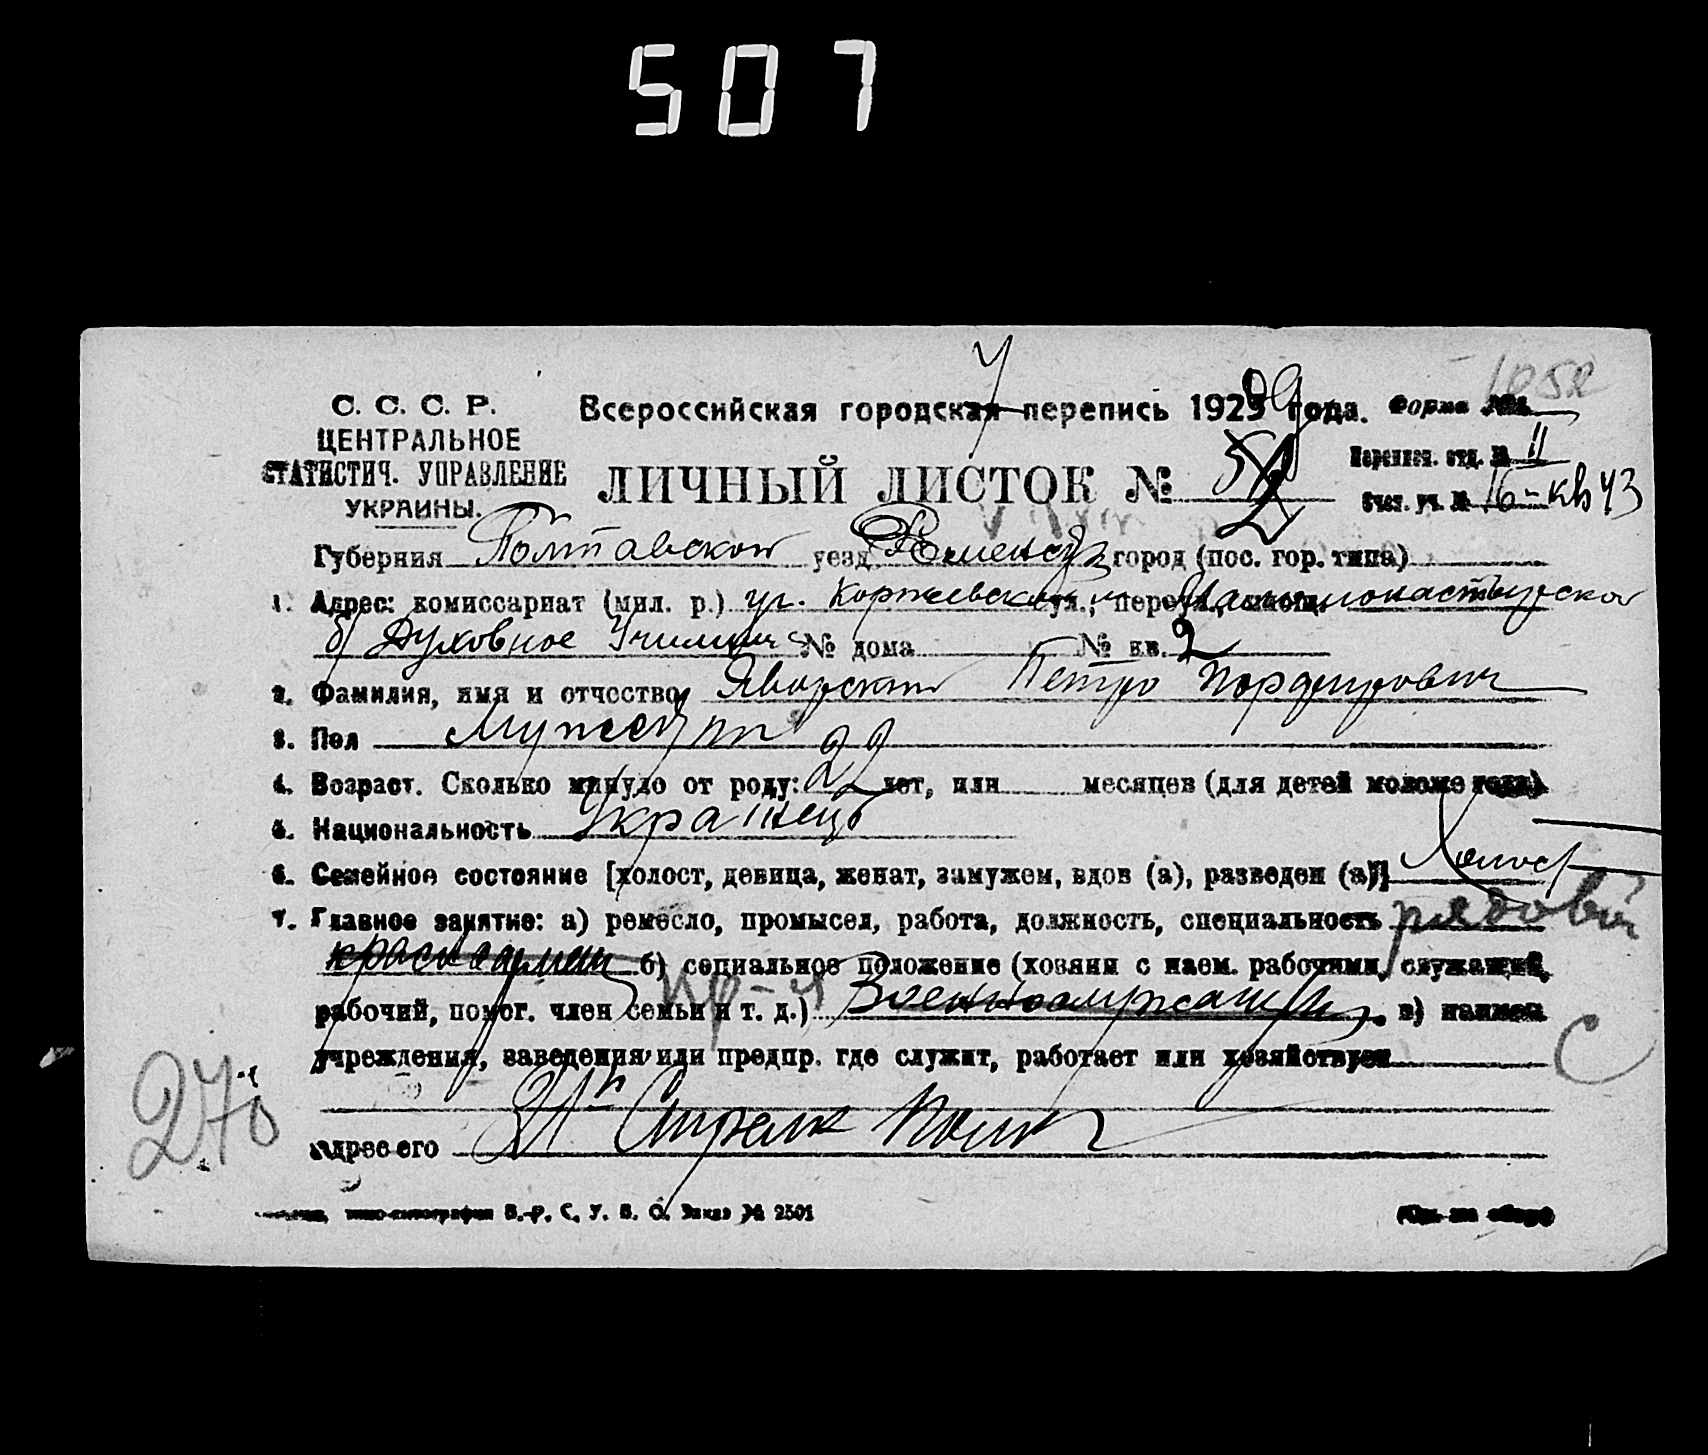 507
1052
С. С. С. Р.
ЦЕНТРАЛЬНОЕ
СТАТИСТИЧ. УПРАВЛЕНИЕ
УКРАИНЫ.
Всероссийская городская перепись 1923 года. Форма №
ЛИЧНЫЙ ЛИСТОК №
Переписн. отд. № II
Счет. уч. № 16 - кв 43
Губерния Полтавской уезд Роменский город (пос. гор. типа)
1. Адрес: комиссариат (мил. р.) уг. Коржевской ул., переул., площ. и Маломонастырской
б/ Духовное Училище № дома № кв. 2
2. Фамилия, имя и отчество Яворский Петро Порфирович
3. Пол Мужеск
4. Возраст. Сколько минуло от роду: 22 лет, или месяцев (для детей моложе года)
5. Национальность Українець
6. Семейное состояние [холост, девица, женат, замужем, вдов (а), разведен (а)] Холост
7. Главное занятие: а) ремесло, промысел, работа, должность, специальность рядовой
красноармеец б) социальное положение (хозяин с наем. рабочими, служащий,
рабочий, помог. член семьи и т. д.) Военнослужащий в) наимен
учреждения, заведения или предпр. где служит, работает или хозяйствует
С
270
адрес его Стрелк Полк
В. Р. С. У. В. О. Заказ № 2501